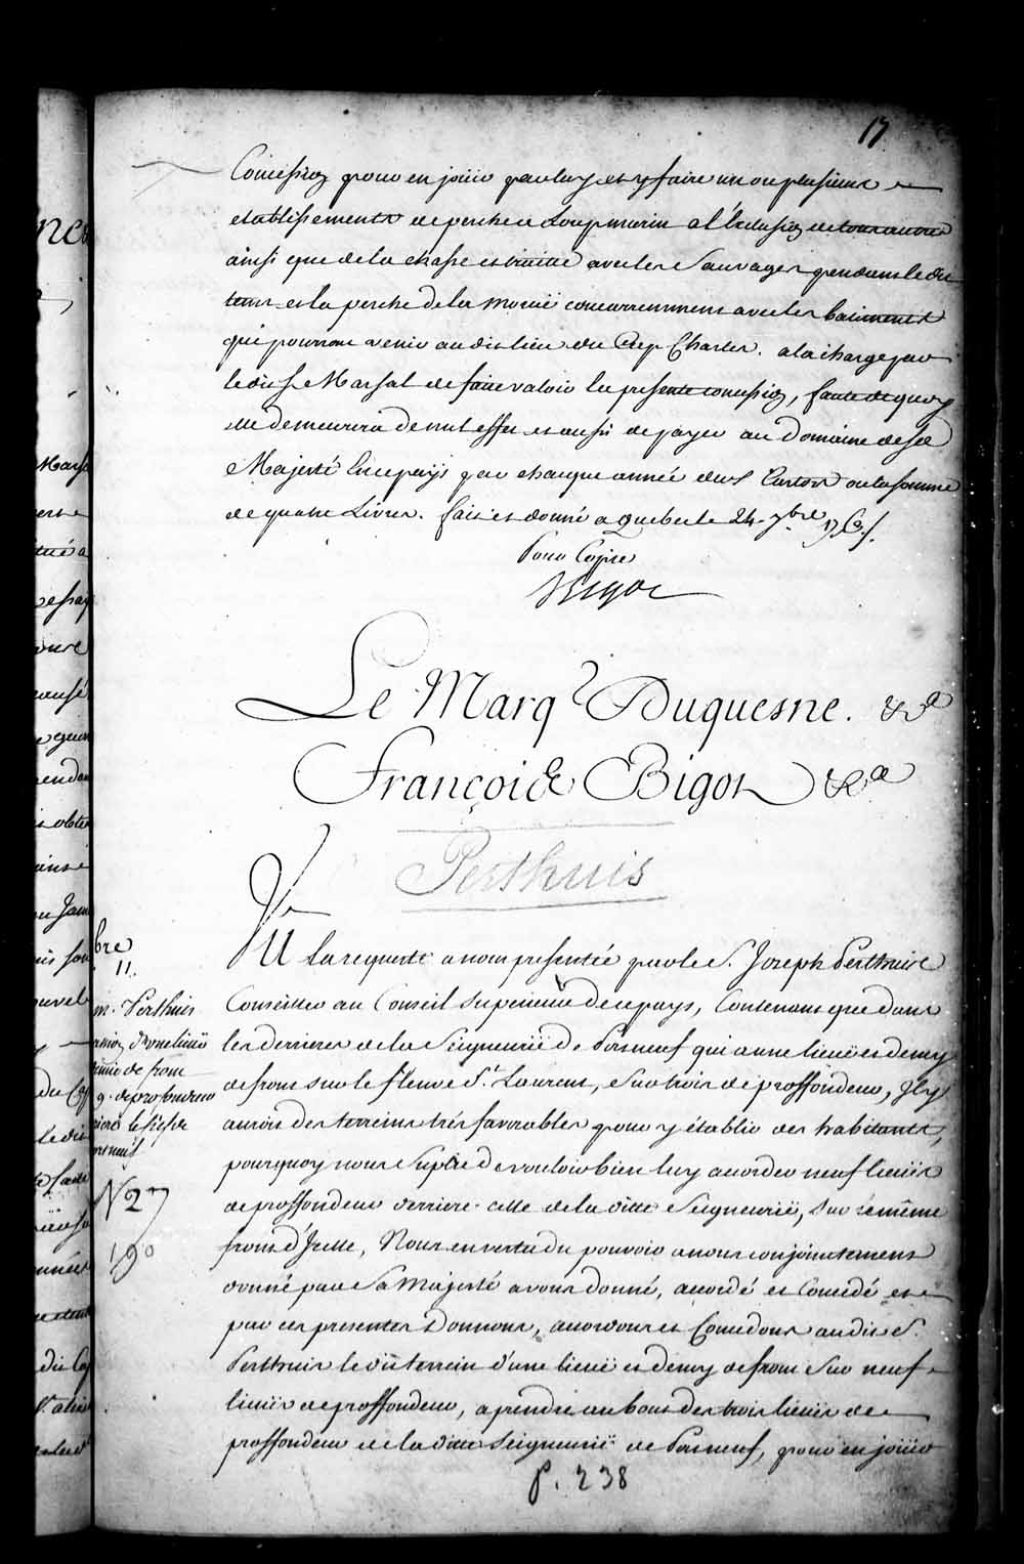 17
Concession pour en jouir par luy et y faire un ou plusieurs
etablissements de pesche a Loup marin a l'Exclusion de tous autres
ainsi que de la chasse et traitte avec les Sauvages pendant le dit
tems et la pesche de la Moruë concurremment avec les batiments
qui pourront venir au dit lieu du Cap Charles. a la charge par
le dit Sr Marsal de faire valoir la presente concession, faute de quoy
elle demeurera de nul effet et aussi de payer au Domaine de Sa
Majesté En ce pays par chaque année deux Castors ou la somme
de quatre Livres. fait et donné a Quebec le 24. 7bre
Pour Copie
Bigot
Le Marqs Duquesne. &ca
François Bigot &ca
Perthuis
Vu la requeste a nous presentée par le S. Joseph Perthuis
Conseiller au Conseil Superieur de ce pays, Contenant que dans
les derrieres de la Seigneurië de Portneuf qui a une lieuë et demy
de front sur le fleuve St. Laurent, sur trois de proffondeur, Il y
auroit des terreins trés favorables pour y établir des habitants,
pourquoy nous Suplie de vouloir bien luy accorder neuf lieuës
de proffondeur derriere celle de la ditte Seigneurië, sur le même
front d'Icelle, Nous en vertu du pouvoir a nous conjointement
donné par Sa Majesté avons donné, accordé et Concedé et
par ces presentes Donnons, accordons et Concedons au dit S.
Perthuis le dit terrein d'une lieuë et demy de front Sur neuf
lieuës de proffondeur, a prendre au bout des trois lieuës de
proffondeur de la ditte Seigneurië de Portneuf, pour en jouir
P. 238
bre
11.
m. Perthuis
d'une lieuë
demie de front
9. de profondeur
le fief de
N 27
19o